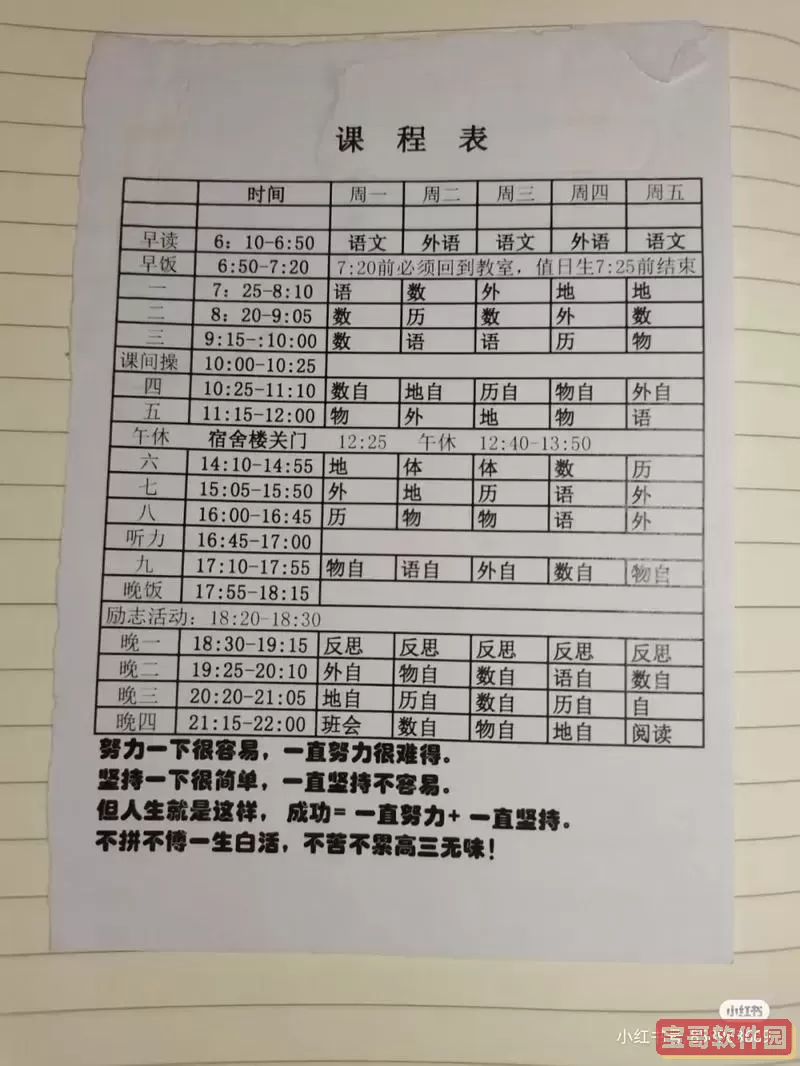 课 程 表
时间 周一 周二 周三 周四 周五
早读 6：10-6:50 语文 外语 语文 外语 语文
早饭 6:50-7:20 7:20前必须回到教室，值日生7:25前结束
一 7：25-8:10 语 数 外 地 地
二 8：20-9:05 数 历 数 外 数
三 9:15-:10:00 数 语 语 历 物
课间操 10:00-10:25
四 10:25-11:10 数自 地自 历自 物自 外自
五 11:15-12:00 物 外 地 物 语
午休 宿舍楼关门 12:25 午休 12:40-13:50
六 14:10-14:55 地 体 体 数 历
七 15:05-15:50 外 地 历 语 外
八 16:00-16:45 历 物 物 语 外
听力 16:45-17:00
九 17:10-17:55 物自 语自 外自 数自 物自
晚饭 17:55-18:15
励志活动：18:20-18:30
晚一 18:30-19:15 反思 反思 反思 反思 反思
晚二 19:25-20:10 外自 物自 数自 语自 数自
晚三 20:20-21:05 地自 历自 数自 历自 自
晚四 21:15-22:00 班会 数自 物自 地自 阅读
努力一下很容易，一直努力很难得.
坚持一下很简单，一直坚持不容易.
但人生就是这样，成功=一直努力+一直坚持.
不拼不博一生白活，不苦不累高三无味!
小红书
小红书
宝哥软件园